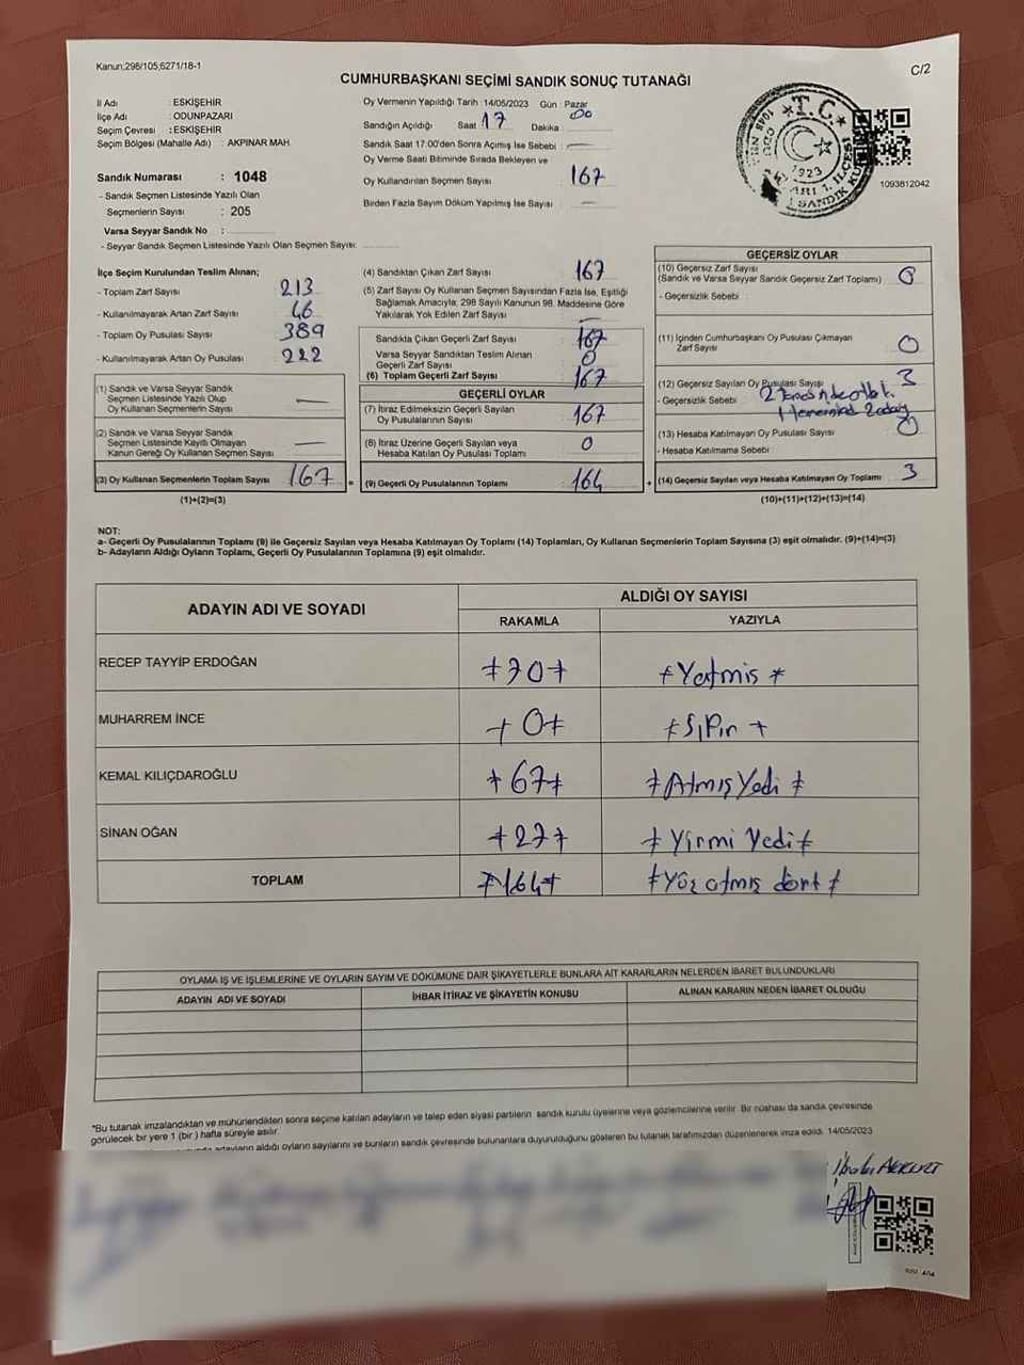 Kanun:298/105;6271/18-1
C/2
CUMHURBAŞKANI SEÇİMİ SANDIK SONUÇ TUTANAĞI
İl Adı : ESKİŞEHİR
İlçe Adı : ODUNPAZARI
Seçim Çevresi : ESKİŞEHİR
Seçim Bölgesi (Mahalle Adı) : AKPINAR MAH.
Sandık Numarası : 1048
- Sandık Seçmen Listesinde Yazılı Olan
Seçmenlerin Sayısı : 205
Varsa Seyyar Sandık No :
- Seyyar Sandık Seçmen Listesinde Yazılı Olan Seçmen Sayısı:
Oy Vermenin Yapıldığı Tarih 14/05/2023 Gün : Pazar
Sandığın Açıldığı Saat 17 Dakika 00
Sandık Saat 17.00'den Sonra Açmış İse Sebebi :
Oy Verme Saati Bitiminde Sırada Bekleyen ve
Oy Kullandırılan Seçmen Sayısı 167
Birden Fazla Sayım Döküm Yapılmış İse Sayısı
T.C.
1923
1093812042
İlçe Seçim Kurulundan Teslim Alınan;
- Toplam Zarf Sayısı 213
- Kullanılmayarak Artan Zarf Sayısı 46
- Toplam Oy Pusulası Sayısı 389
- Kullanılmayarak Artan Oy Pusulası 222
(1) Sandık ve Varsa Seyyar Sandık
Seçmen Listesinde Yazılı Olup
Oy Kullanan Seçmenlerin Sayısı
(2) Sandık ve Varsa Seyyar Sandık
Seçmen Listesinde Kayıtlı Olmayan
Kanun Gereği Oy Kullanan Seçmen Sayısı
(3) Oy Kullanan Seçmenlerin Toplam Sayısı 167
(1)+(2)=(3)
(4) Sandıktan Çıkan Zarf Sayısı 167
(5) Zarf Sayısı Oy Kullanan Seçmen Sayısından Fazla İse, Eşitliği
Sağlamak Amacıyla; 298 Sayılı Kanunun 98. Maddesine Göre
Yakılarak Yok Edilen Zarf Sayısı
Sandıkta Çıkan Geçerli Zarf Sayısı 167
Varsa Seyyar Sandıktan Teslim Alınan
Geçerli Zarf Sayısı 0
(6) Toplam Geçerli Zarf Sayısı 167
GEÇERLİ OYLAR
(7) İtiraz Edilmeksizin Geçerli Sayılan
Oy Pusulasının Sayısı 167
(8) İtiraz Üzerine Geçerli Sayılan veya
Hesaba Katılan Oy Pusulası Toplamı 0
(9) Geçerli Oy Pusulalarının Toplamı 164
GEÇERSİZ OYLAR
(10) Geçersiz Zarf Sayısı
(Sandık ve Varsa Seyyar Sandık Geçersiz Zarf Toplamı) 0
- Geçersizlik Sebebi
(11) İçinden Cumhurbaşkanı Oy Pusulası Çıkmayan
Zarf Sayısı 0
(12) Geçersiz Sayılan Oy Pusulası Sayısı 3
- Geçersizlik Sebebi
(13) Hesaba Katılmayan Oy Pusulası Sayısı 0
- Hesaba Katılmama Sebebi
(14) Geçersiz Sayılan veya Hesaba Katılmayan Oy Toplamı 3
(10)+(11)+(12)+(13)=(14)
NOT:
a- Geçerli Oy Pusulalarının Toplamı (9) ile Geçersiz Sayılan veya Hesaba Katılmayan Oy Toplamı (14) Toplamları, Oy Kullanan Seçmenlerin Toplam Sayısına (3) eşit olmalıdır. (9)+(14)=(3)
b- Adayların Aldığı Oyların Toplamı, Geçerli Oy Pusulalarının Toplamına (9) eşit olmalıdır.
ADAYIN ADI VE SOYADI ALDIĞI OY SAYISI
RAKAMLA YAZIYLA
RECEP TAYYİP ERDOĞAN 70 Yetmiş
MUHARREM İNCE 0 Sıfır
KEMAL KILIÇDAROĞLU 67 Atmış Yedi
SİNAN OĞAN 27 Yirmi Yedi
TOPLAM 164 Yüz atmış dört
OYLAMA İŞ VE İŞLEMLERİNE VE OYLARIN SAYIM VE DÖKÜMÜNE DAİR ŞİKAYETLERLE BUNLARA AİT KARARLARIN NELERDEN İBARET BULUNDUKLARI
ADAYIN ADI VE SOYADI İHBAR İTİRAZ VE ŞİKAYETİN KONUSU ALINAN KARARIN NEDEN İBARET OLDUĞU
*Bu tutanak imzalandıktan ve mühürlendikten sonra seçime katılan adayların ve talep eden siyasi partilerin sandık kurulu üyelerine veya gözlemcilerine verilir. Bir nüshası da sandık çevresinde
görülecek bir yere 1 (bir) hafta süreyle asılır.
adayların aldığı oyların sayılarını ve bunların sandık çevresinde bulunanlara duyurulduğunu gösteren bu tutanak tarafımızdan düzenlenerek imza edildi. 14/05/2023